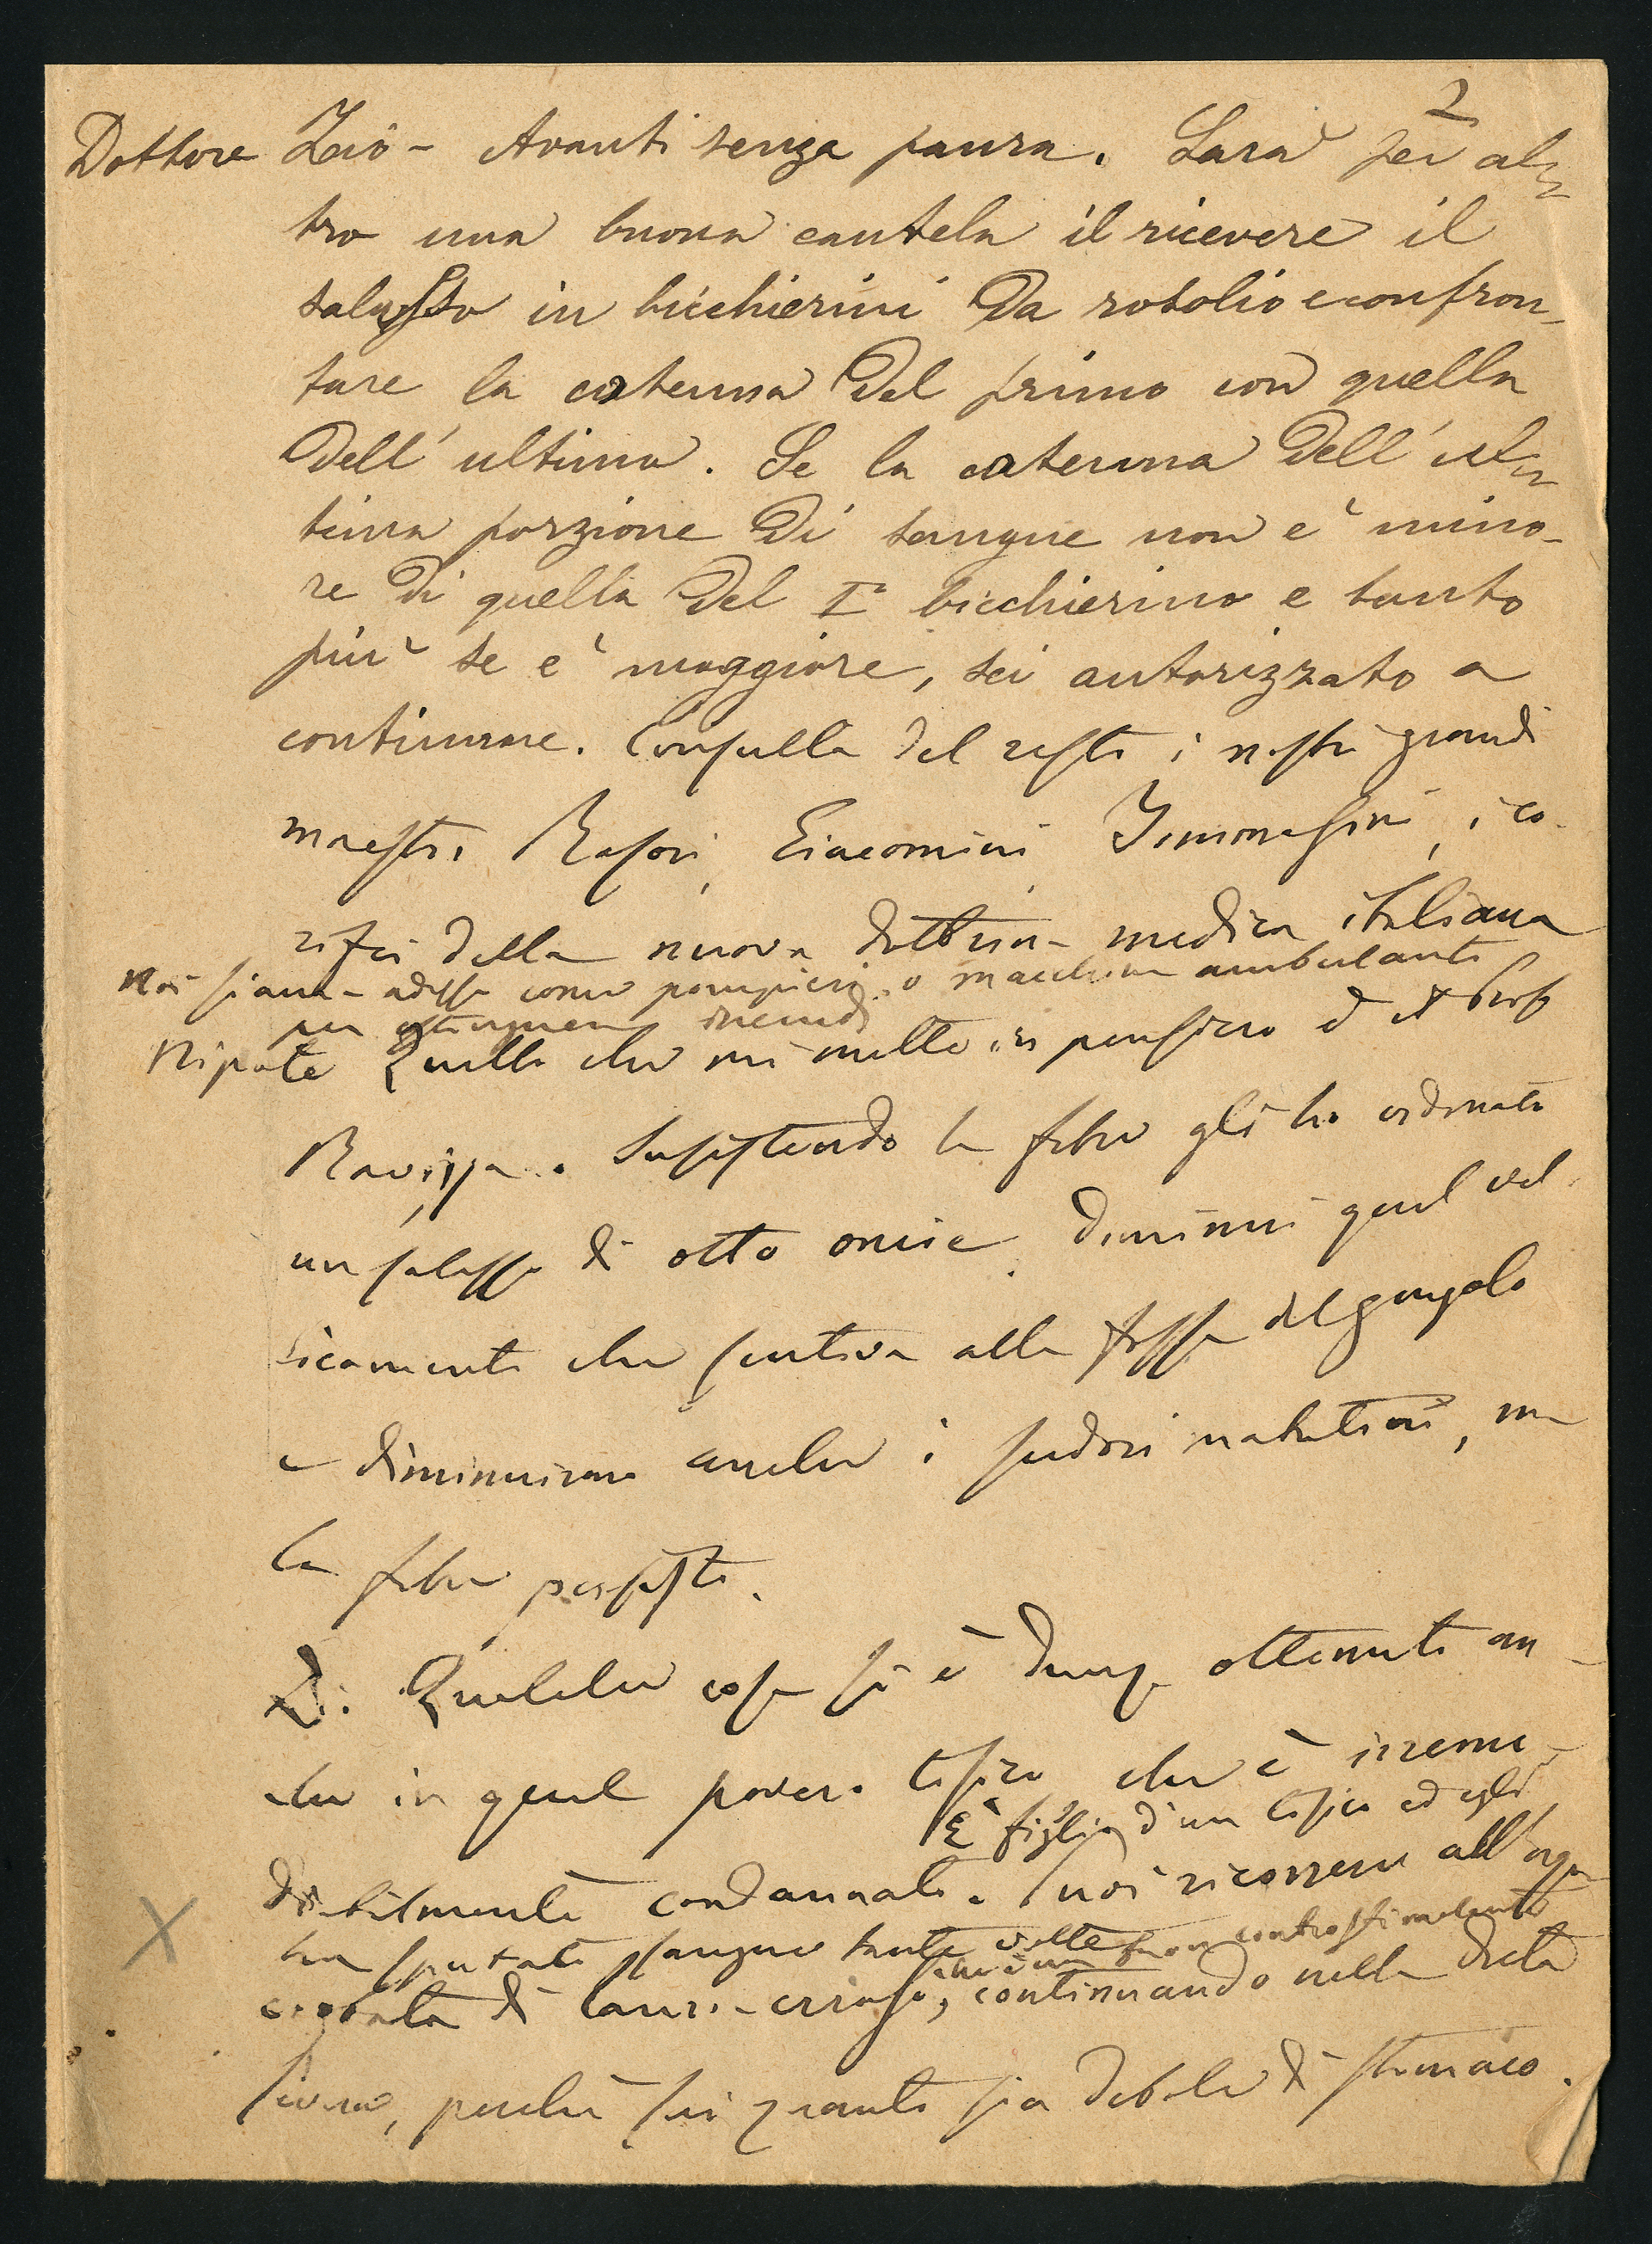 2
Dottore Zio - Avanti senza paura. Sarà per al-
tro una buona cautela il ricevere il
salasso in bicchierini da rosolio e confron-
tare la cotenna del primo con quella
dell'ultimo. Se la cotenna dell'ul-
tima porzione di sangue non è mino-
re di quella del I° bicchierino e tanto
più se è maggiore, sei autorizzato a
continuare. Consulta del resto i nostri grandi
maestri Rasori, Giacomini, Tommasini, i co-
rifei della nuova dottrina medica italiana
Noi siamo adesso come pompieri o macchine ambulanti
per estinguere incendi
Nipote Quello che mi mette in pensiero è il
Ravizza. Sussistendo la febbre gli ho ordinato
un salasso di otto oncie. Diminuì quel vel-
licamento che sentiva alla fossa del giugolo
e diminuirono anche i sudori mattutini, ma
la febbre persiste.
D. Qualche cosa si è dunque ottenuto an-
che in quel povero tisico che è irreme-
È figlio d'un tisico ed egli
diabilmente condannato. Puoi ricorrere all'acqua
ha sputato sangue tante volte
che è un buon controstimolante
coobata di lauro-ceraso, continuando nella dieta
severa, perchè sai quanto sia debole di stomaco.
X